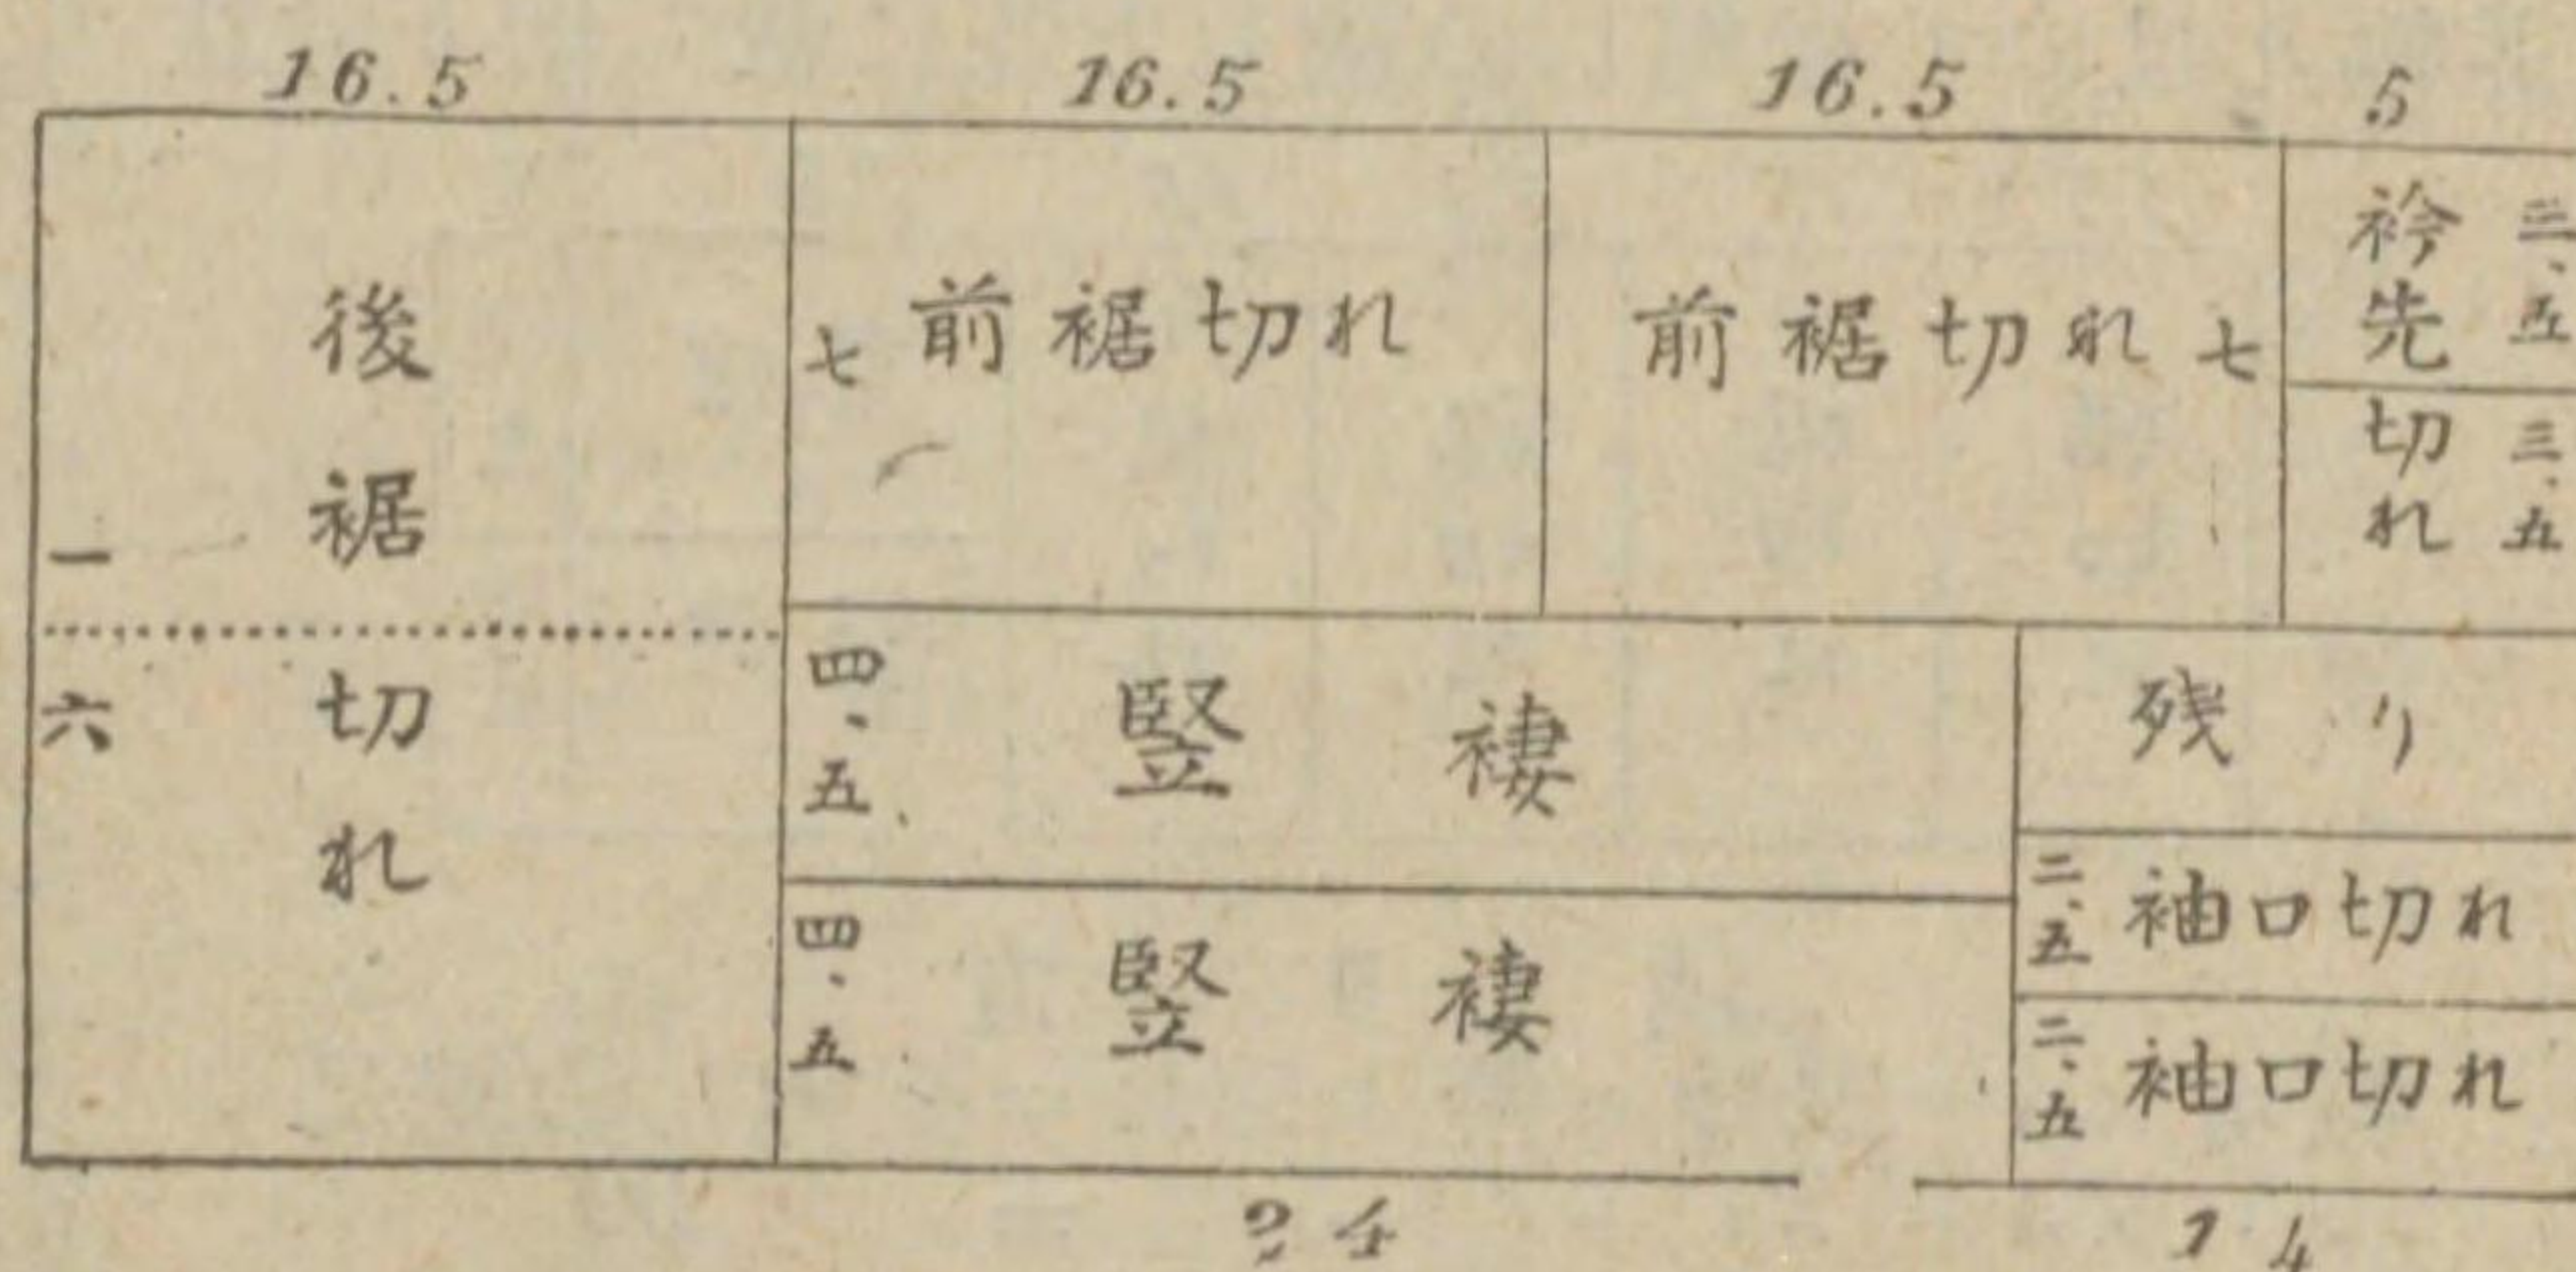 16.5
16.5
16.5
5
後裾切れ
一六
七
前裾切れ
前裾切れ
七
衿先切れ
三、五
三、五
四、五
竪褄
四、五
竪褄
残り
二、五
袖口切れ
二、五
袖口切れ
24
14